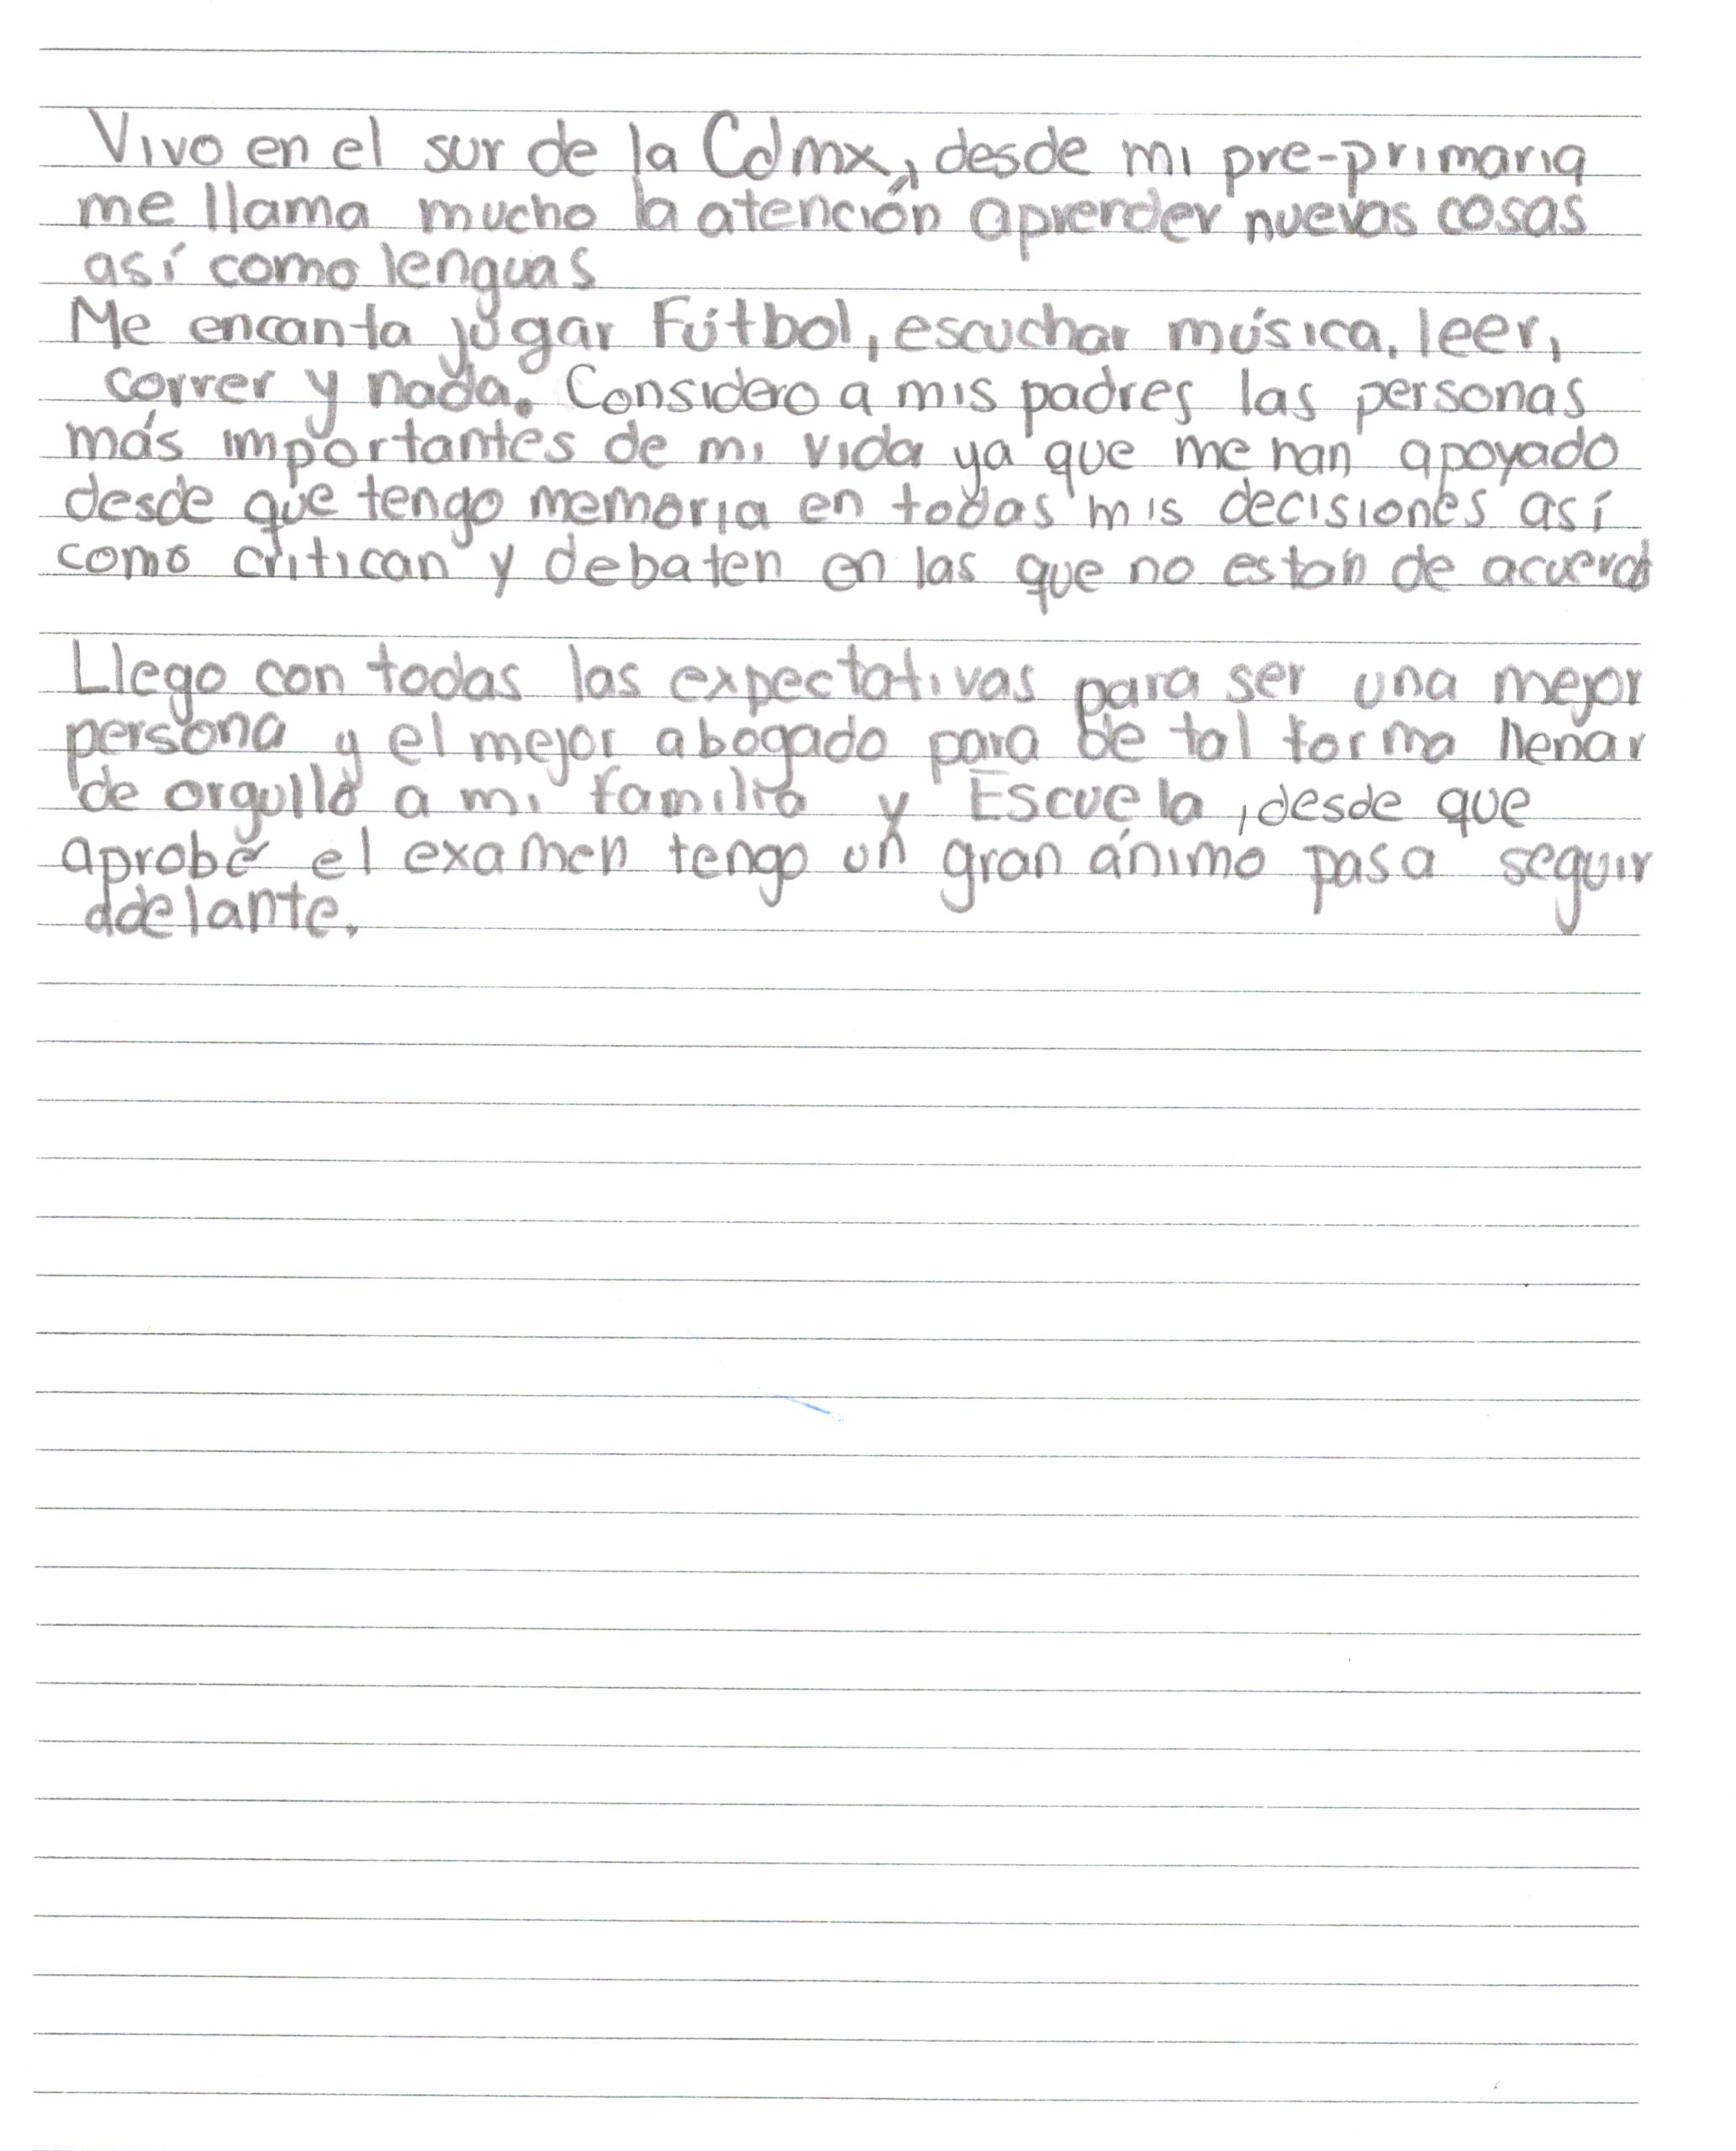 Vivo en el sur de la Cdmx, desde mi pre-primaria
me llama mucho la atención aprender nuevas cosas
así como lenguas
Me encanta jugar Fútbol, escuchar música, leer,
correr y nada. Considero a mis padres las personas
más importantes de mi vida ya que me han apoyado
desde que tengo memoria en todas mis decisiones así
como critican y debaten en las que no están de acuerdo
Llego con todas las expectativas para ser una mejor
persona y el mejor abogado para de tal forma llenar
de orgullo a mi familia y Escuela, desde que
aprobé el examen tengo un gran ánimo pasa seguir
adelante.